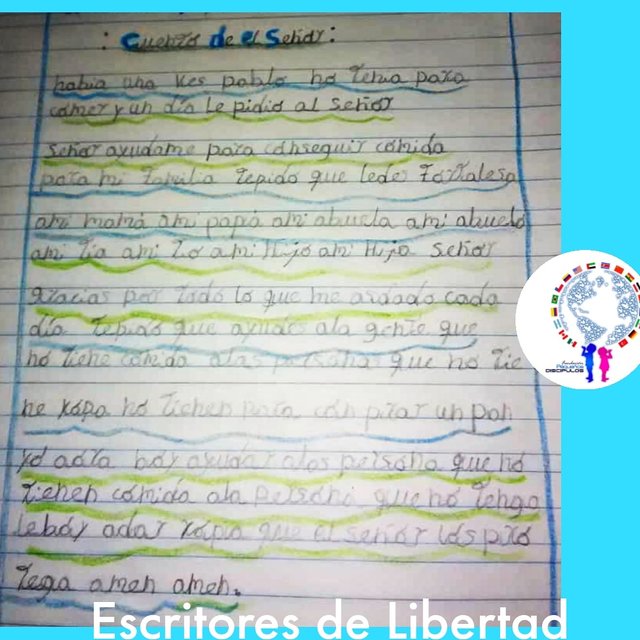 : Cuento de el Señor:
había una ves pablo no tenia para
comer y un día le pidio al señor
señor ayudame para conseguir comida
para mi familia tepido que ledes fortalesa
ami mamá ami papá ami abuela ami abuelo
ami tia ami to ami Hijo ami Hija señor
gracias por todo lo que me as dado cada
día tepido que ayudes ala gente que
no tiene comida alas persona que no tie
ne ropa no tienen para con prar un pan
yo adra boy ayudar alas persona que no
tienen comida ala persona que no tenga
leboy adar ropia que el señor los pro
tega amen amen.
fundación
Pequeños
DISCÍPULOS
Escritores de Libertad